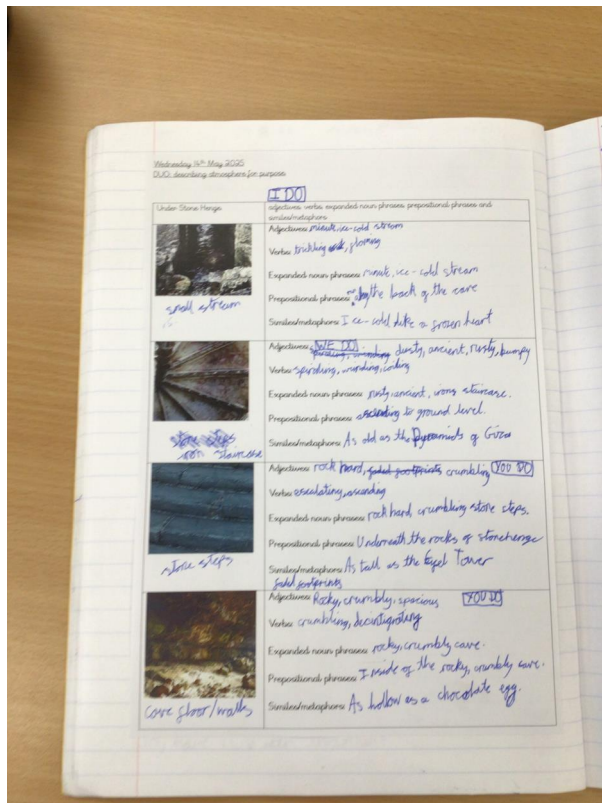 Wednesday 14th May 2025
DUO: describing atmosphere for purpose
I DO
Under Stone Henge
adjectives verbs expanded noun phrases prepositional phrases and
similes/metaphors
Adjectives: minute, ice-cold stream
Verbs: trickling, flowing
Expanded noun phrases: minute, ice-cold stream
Prepositional phrases: by the back of the cave
Similes/metaphors: I ce-cold like a frozen heart
small stream
WE DO
Adjectives: spiraling, winding dusty, ancient, rusty, bumpy
Verbs: spiraling, winding, coiling
Expanded noun phrases: rusty, ancient, irong staircase.
Prepositional phrases: ascending to ground level.
Similes/metaphors: As old as the Pyramids of Giza
stone steps
iron staircase
Adjectives: rock hard, faded footprints crumbling YOU DO
Verbs: escalating, ascending
Expanded noun phrases: rock hard crumbling stone steps.
Prepositional phrases: Underneath the rocks of stonehenge
Similes/metaphors: As tall as the Eifel Tower
faded footprints
stone steps
Adjectives: Rocky, crumbly, spacious YOU DO
Verbs: crumbling, decintigrating
Expanded noun phrases: rocky, crumbly cave.
Prepositional phrases: I nside of the rocky, crumbly cave.
Similes/metaphors: As hollow as a chocolate egg.
Cave floor/walls